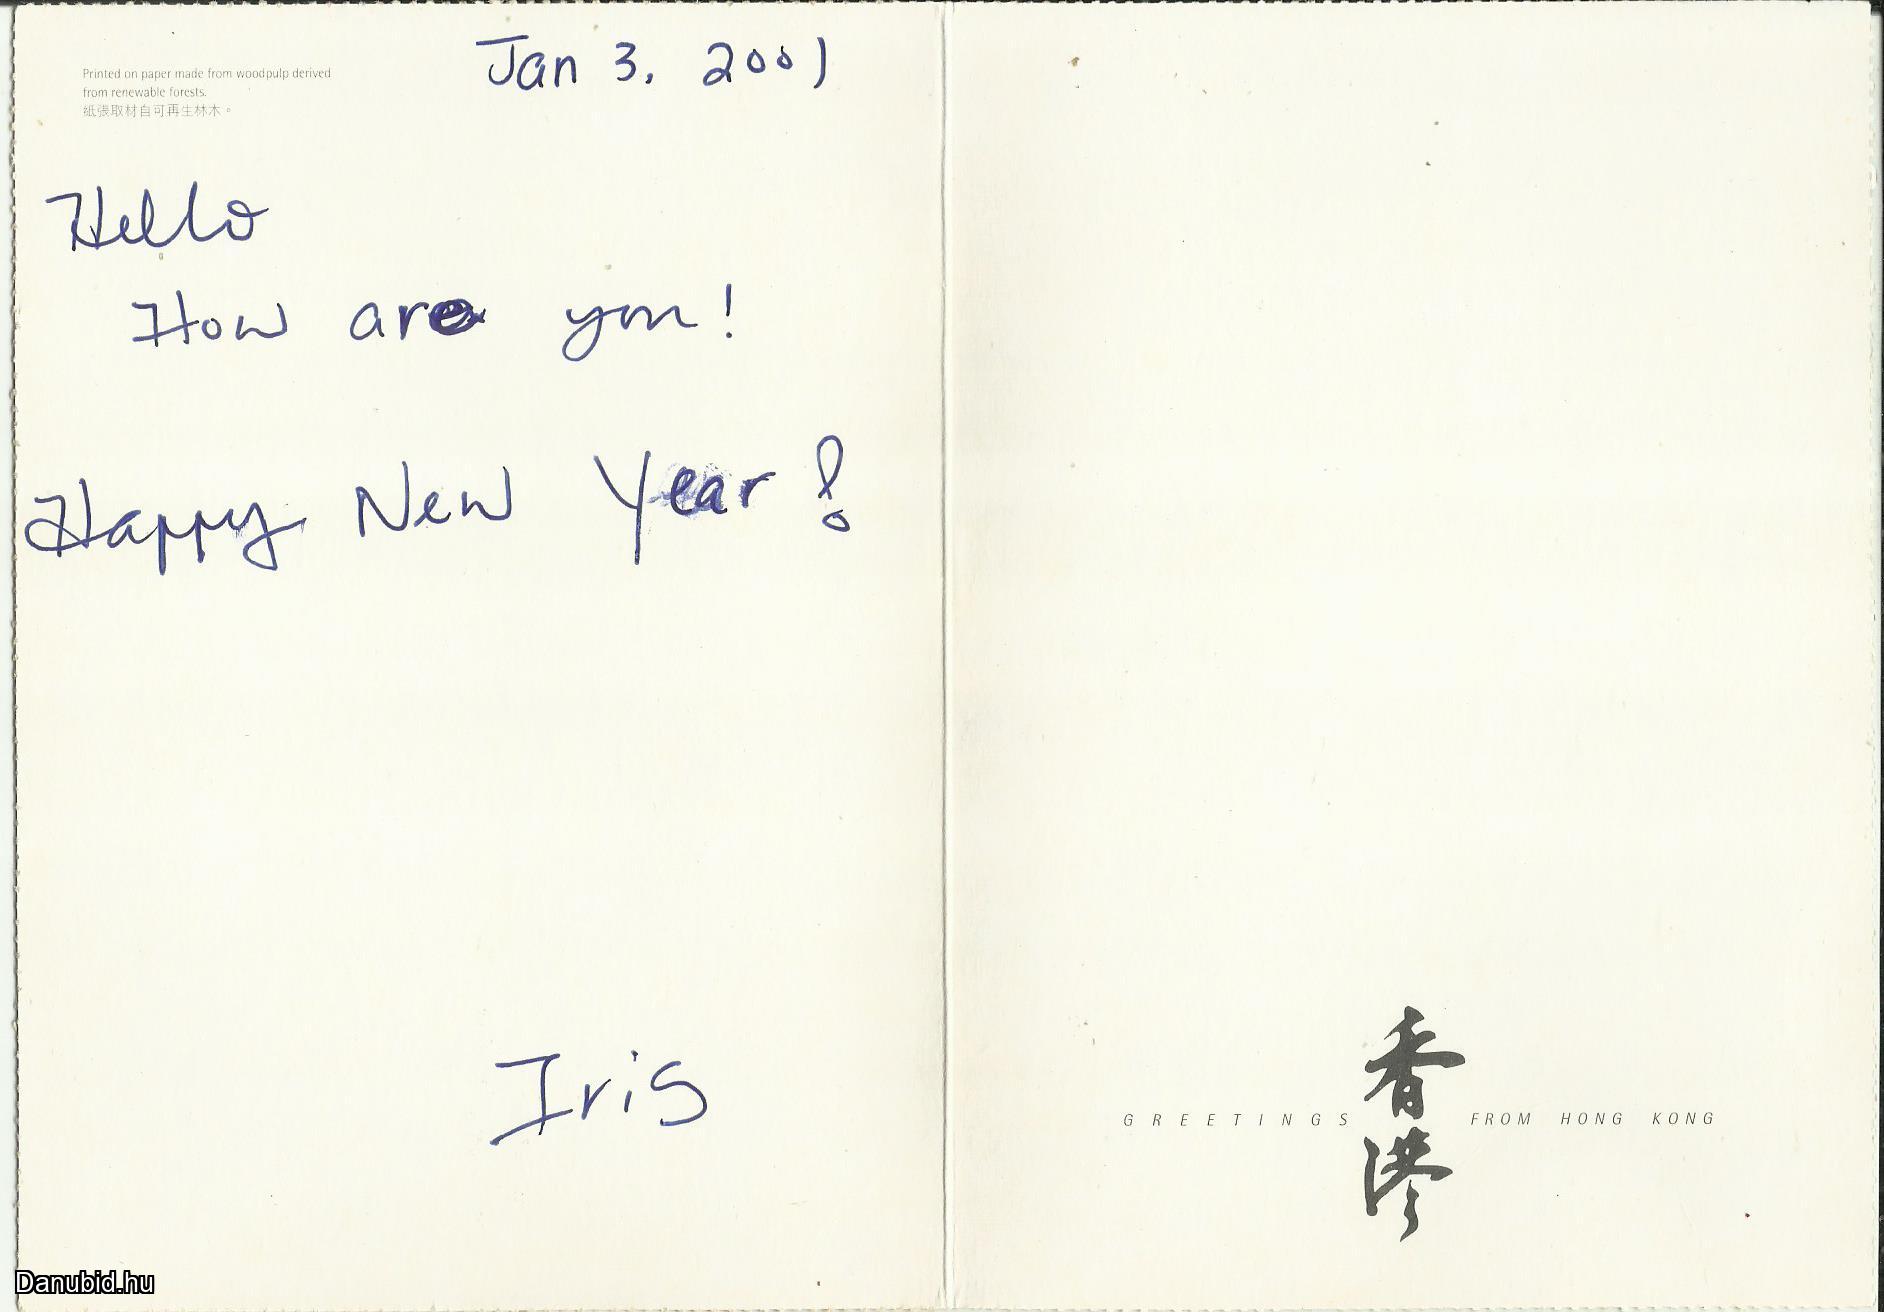 Printed on paper made from woodpulp derived
from renewable forests.
紙張取材自可再生林木。
Jan 3, 2001
Hello
How are you!
Happy New Year!
Iris
GREETINGS 香港 FROM HONG KONG
Danubid.hu